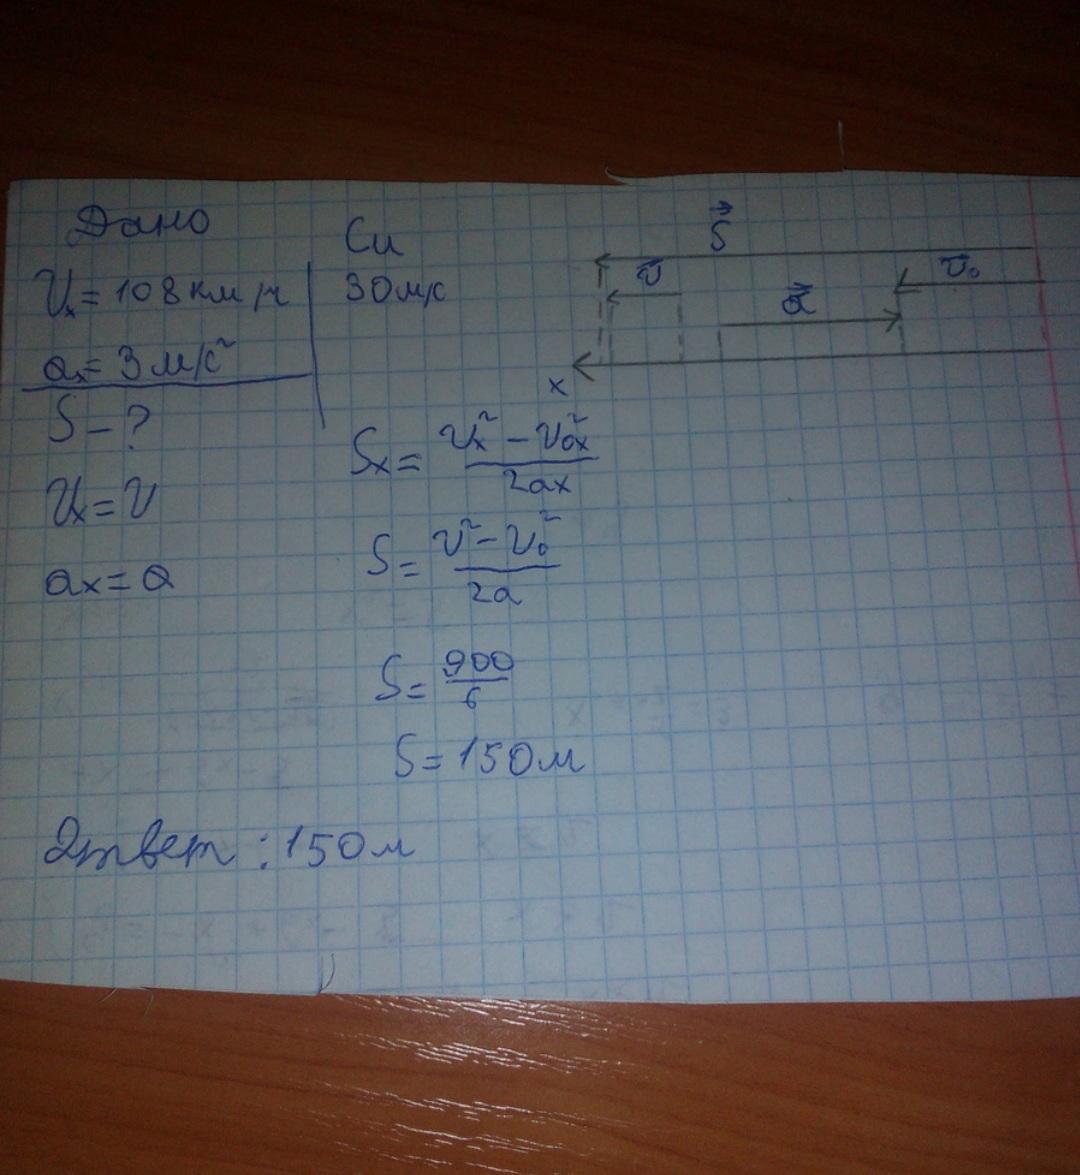 Дано
Си
Vₓ = 108 км/ч
30 м/с
aₓ = 3 м/с²
S – ?
Vₓ = V
aₓ = a
S⃗
v⃗
v⃗₀
a⃗
x
Sₓ = (vₓ² – v₀ₓ²) / 2aₓ
S = (v² – v₀²) / 2a
S = 900 / 6
S = 150 м
Ответ : 150 м